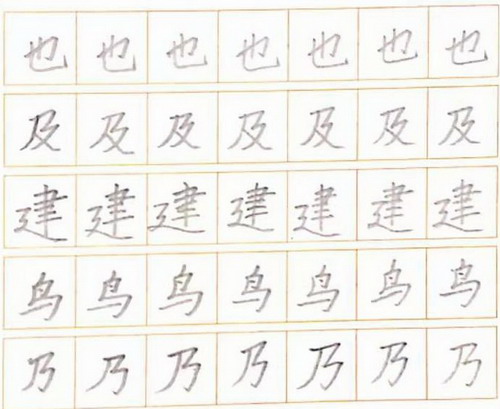 也也也也也也也
及及及及及及及
建建建建建建建
鸟鸟鸟鸟鸟鸟鸟
乃乃乃乃乃乃乃